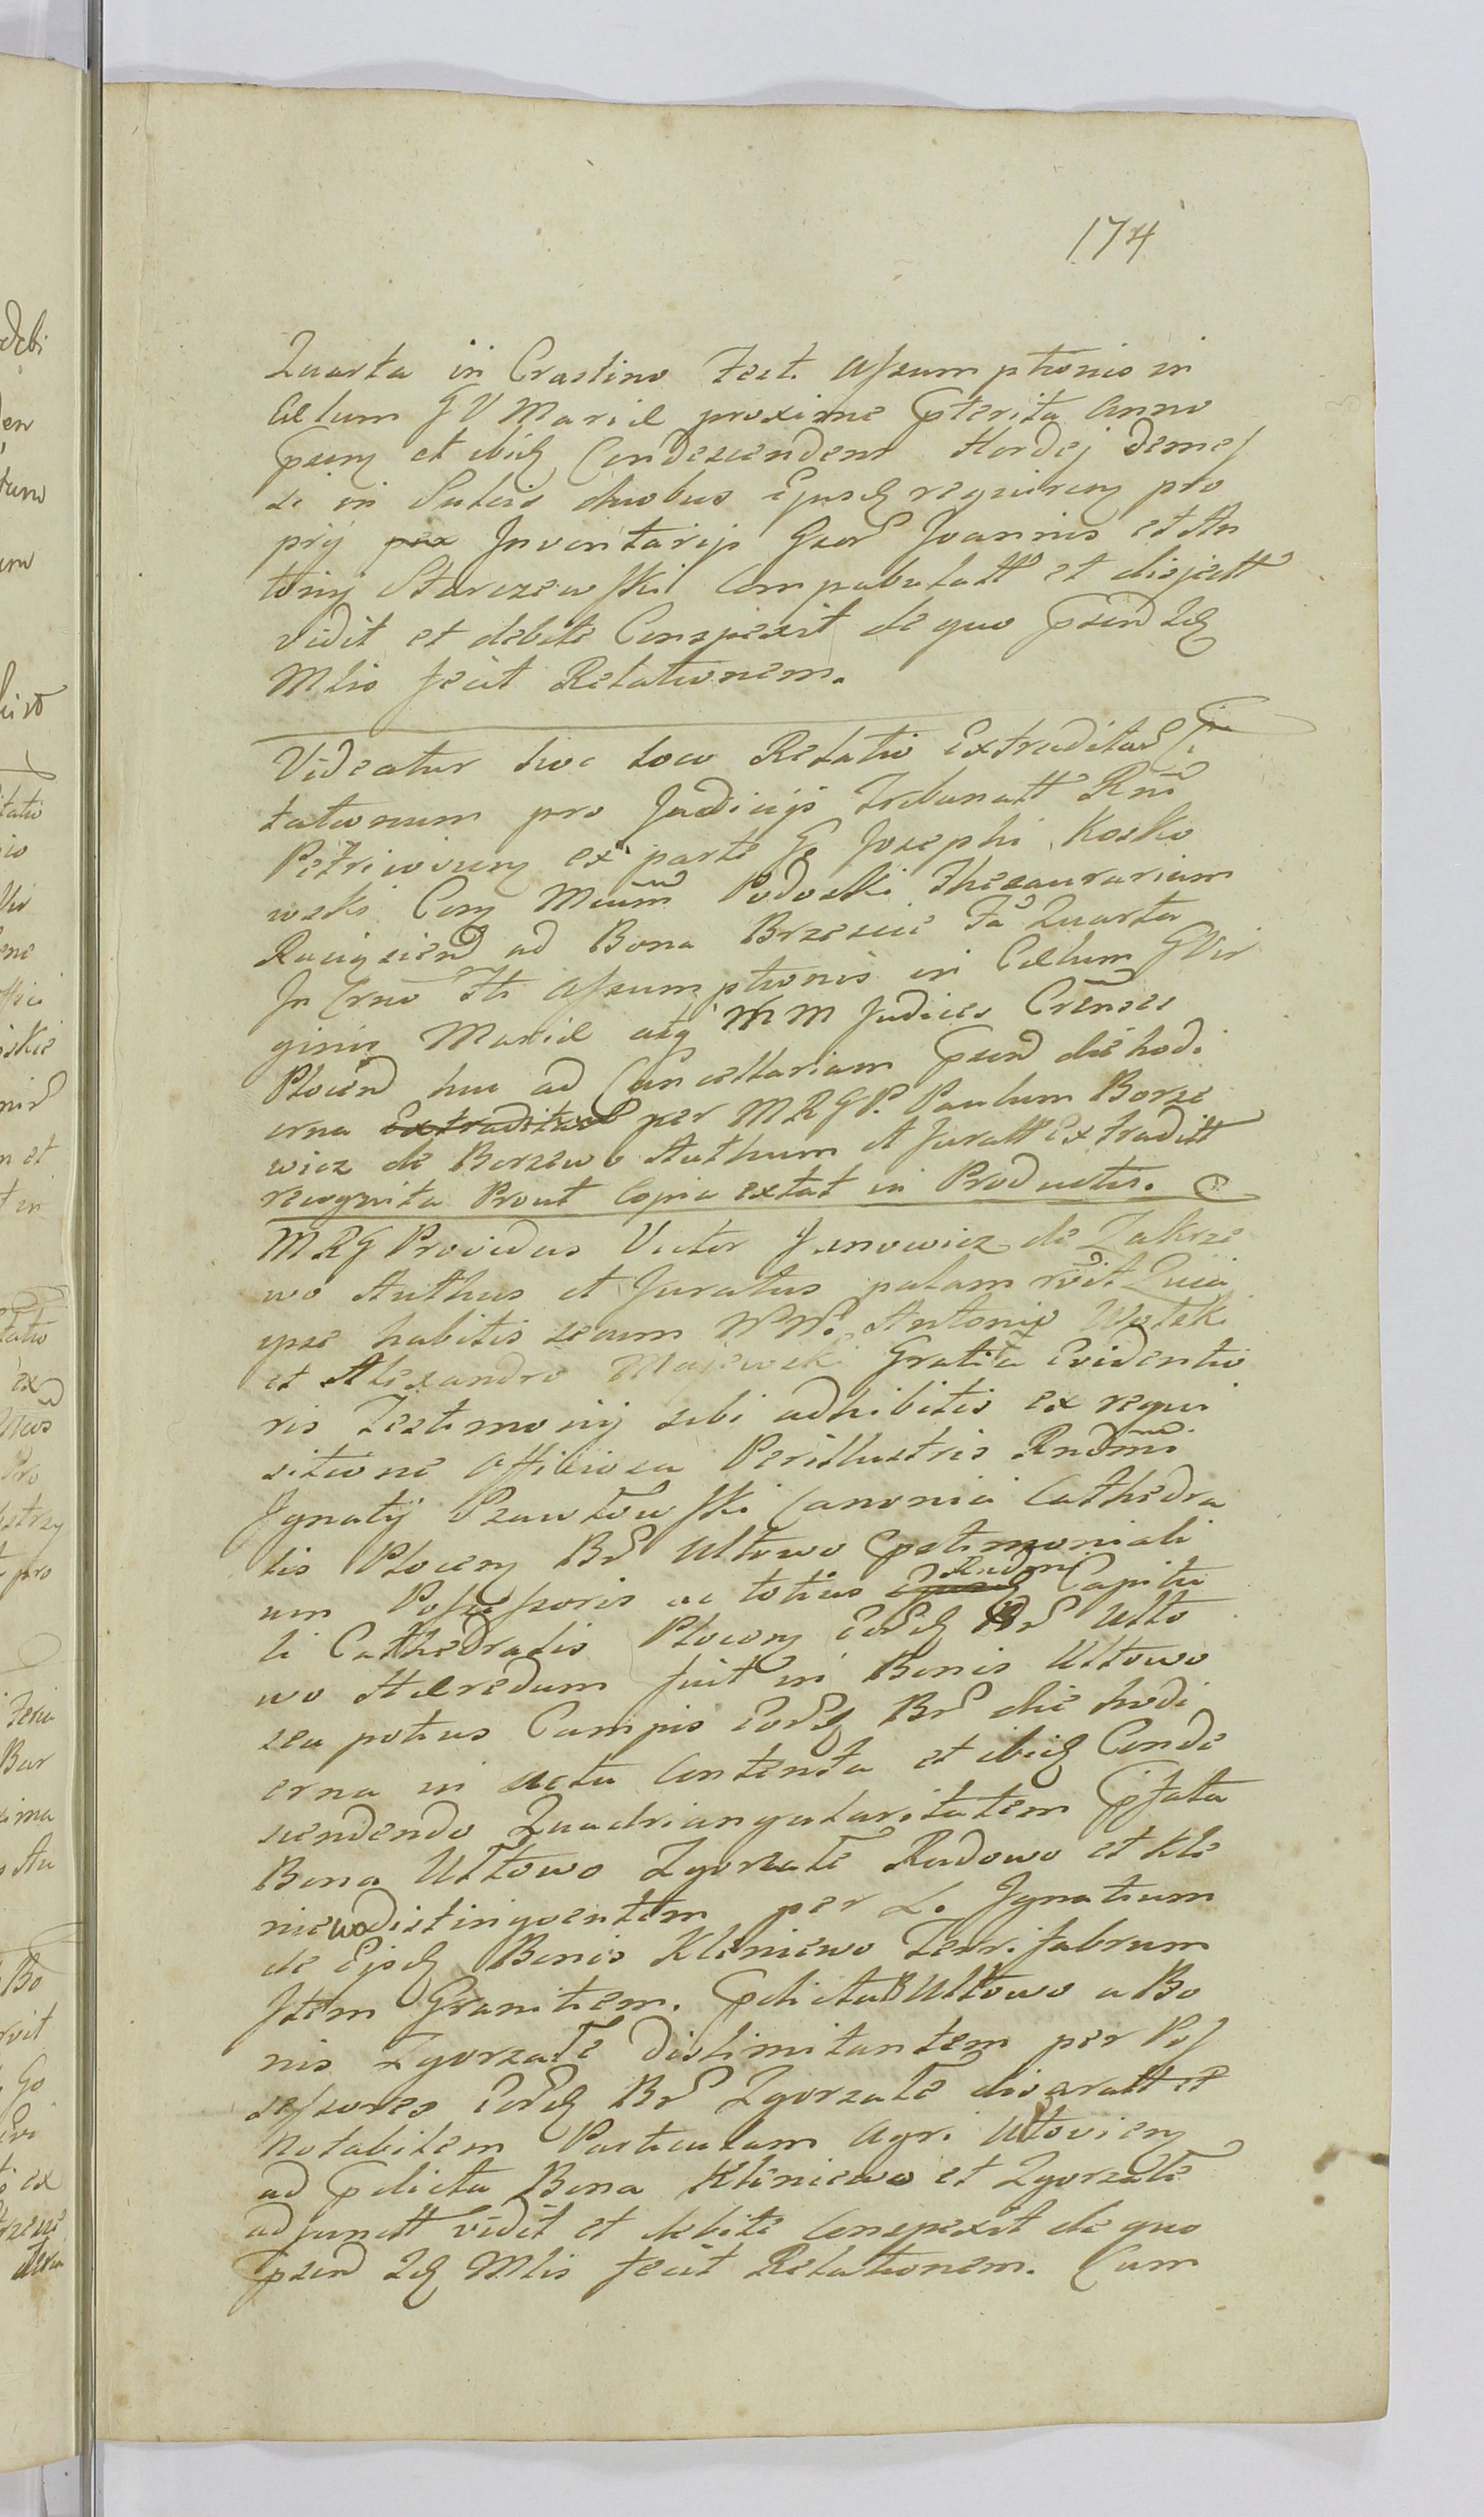 174
Quarta in Crastino Festi Assumptionis in
Cælum G V Mariæ proxime pterita Anno
psenj et ibiq Condescendens Hordej demes
si in Sulcis duobus Ejusq requirenj pro
prij Inventarijs Gsor Joannis et An
tonij Starczewski Compabulatt et disjectt
vidit et debite Conspexit de quo psend Lq
Mlis fecit Relationem.
Videatur hoc loco Relatio Extradita Ci
tationum pro Judicijs Tribunatt Rni
Petriwienj ex parte G Josephi Kosko
wski Conj Mcum Podoski Thesaurarium
Raciąziens ad Bona Brzescie Fa Quarta
In Crno Fti Assumptionis in Cælum G Vir
ginis Mariæ atq M M Judices Crenses
Plocens huc ad Cancellariam psend die hodi
erna Extraditas per M R G P. Paulum Borze
wicz de Borzewo Authum et Juratt Extraditt
recognita Prout Copia extat in Productis.
M R G Providus Victor Janowicz de Zakrze
wo Authus et Juratus palam rvdt Quia
ipse habitis secum N N. Antonio
et Alexandro Majewski Gratia Evidentio
ris Testimonij sibi adhibitis ex requi
sitione Officiosa Perillustris Rndmi
Ignatij Pzawłowski Canonici Cathedra
lis Plocenj Br Ułtowo Patrimoniali
um Possessoris ac totius Rndmi Capitu
li Cathedralis Plocenj Eorq Br Ułto
wo Hæredum fuit in Bonis Ułtowo
seu potius Campis Eorq Br die hodi
erna in Actu Contenta et ibiq Conde
scendendo Quadriangularitatem pfata
Bona Ułtowo Zgorzałe Radowo et Kle
niewo distingventem per L. Ignatium
de Ejsq Bonis Kleniewo Ferrifabrum
Item Granitiem. pdicta B Ułtowo a Bo
nis Zgorzałe dislimitantem per Pos
sessores Eorq Br Zgorzałe disaratt et
Notabilem Particulam Agri Ułtovienj
ad pdicta Bona Kleniewo et Zgorzałe
adjunctt vidit et debite Conspexit de quo
psend Lq Mlis fecit Relationem. Cum